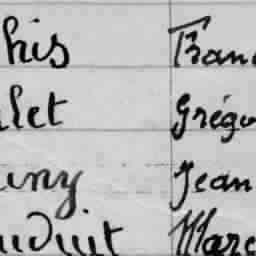 his Fran
let Grégo
uny Jean
uduit Marc